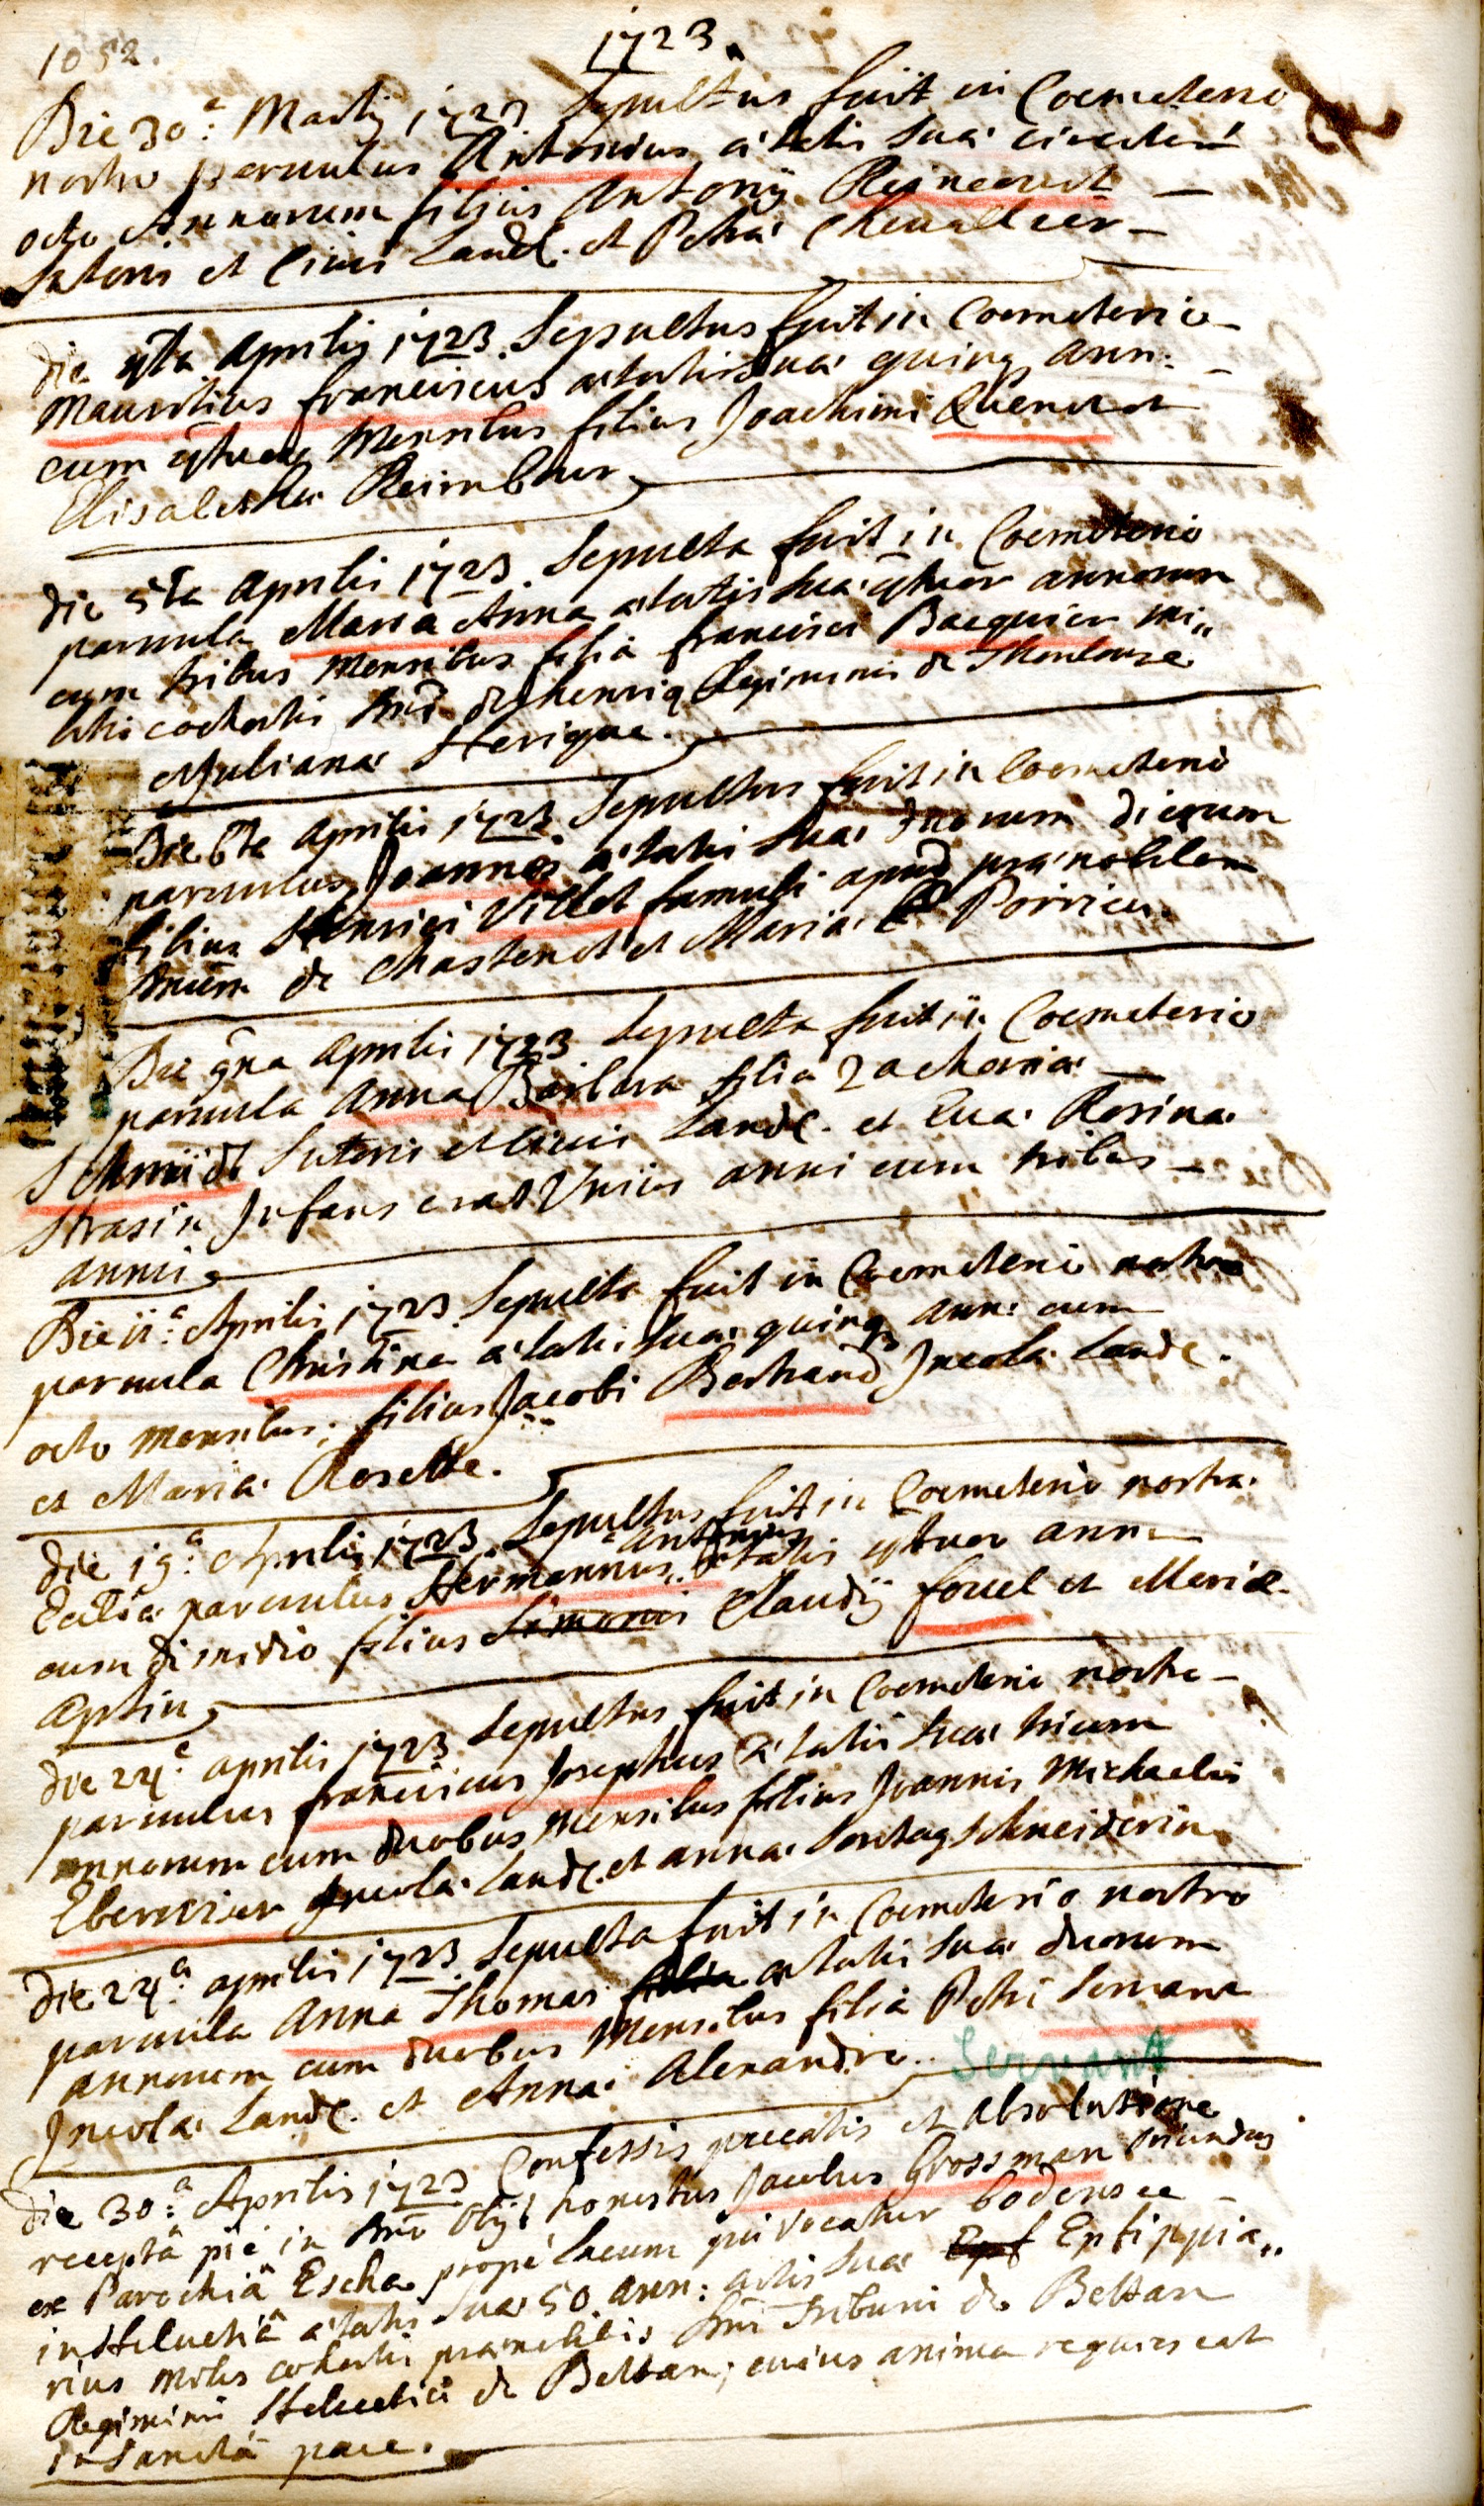 1052.
1723.
Die 30.a Martij 1723 Sepultus fuit in Coemeterio
nostro parvulus Antonius ætatis suæ
octo Annorum filius Antonij
Sutoris et Civis Land. et Petræ Chevallier
Die 4ta Aprilis 1723. Sepultus fuit in Coemeterio
Mauritius franciscus ætatis suæ quinq ann:
cum Mensibus filius Joachimi Quenot et
Elisabethæ
Die 5ta Aprilis 1723. Sepulta fuit in Coemeterio
parvula Maria Anna ætatis suæ 4tuor annorum
cum tribus Mensibus filia francisci Bacquier mi„
litis cohortis Dni de Regiminis de
et Julianæ Herigue.
Die 6ta Aprilis 1723. Sepultus fuit in Coemeterio
parvulus Joannes ætatis suæ duorum dierum
filius Henrici Villet famuli apud prænobilem
Dnum de Chastenot et Mariæ
Die 9na Aprilis 1723 Sepulta fuit in Coemeterio
parvula Anna Barbara filia Zachariæ
Schmidt Sutoris et Civis Land. et Evæ Rosinæ
Strasin Infans erat Unius anni cum tribus
annis
Die 11.a Aprilis 1723. Sepulta fuit in Coemeterio nostro
parvula Christina ætatis suæ quinq ann: cum
octo Mensibus; filius Jacobi Bertrand Incolæ Land.
et Mariæ Rosette.
Die 19.a Aprilis 1723. Sepultus fuit in Coemeterio nostræ
Antonius
parvulus Hermannus ætatis 4tuor ann:
cum dimidio filius Simonis Claudij fouel et Mariæ
Aptin
Die 24.a aprilis 1723. Sepultus fuit in Coemeterio nostro
parvulus franciscus Josephus ætatis suæ trium
annorum cum duobus Mensibus filius Joannis Michaelis
Incolæ Land. et annæ Sontag Schneiderin
Die 24.a aprilis 1723. Sepulta fuit in Coemeterio nostro
parvula Anna Thomas filia ætatis suæ duorum
annorum cum duobus Mensibus filia Petri
Incolæ Land. et Annæ Alexandre.
Servant
Die 30.a Aprilis 1723 Confessis peccatis et absolutione
receptâ piè in Dno obijt honestus Jacobus Grossman oriundus
ex Parochiâ Escha prope lacum qui vocatur bodensee
in Helvetiâ ætatis suæ 50 ann: Ephippia„
rius Miles cohortis prænobilis Dni Tribuni de Bettan
Regiminis Helvetici de Bettan; cuius anima requiescat
in Sanctâ pace.